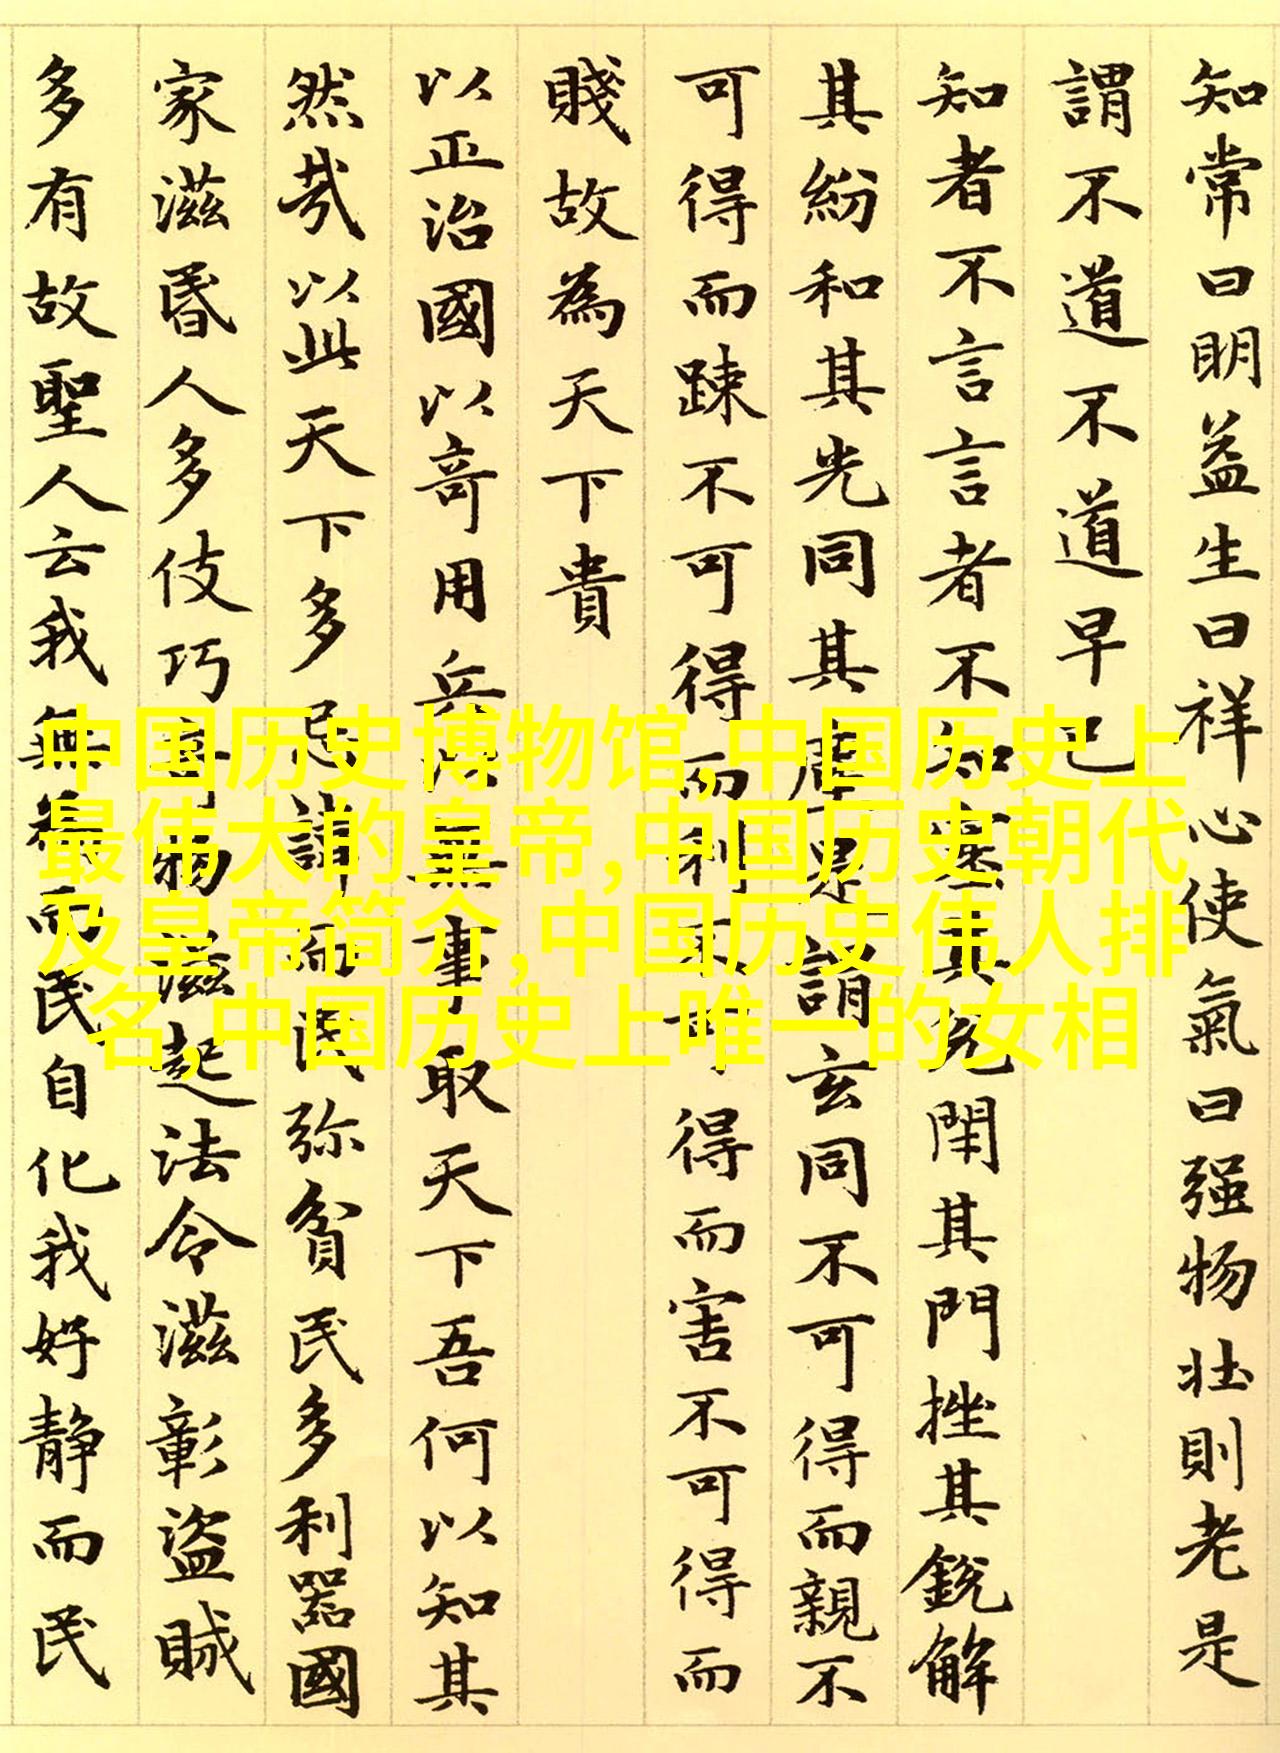 知常曰明益生曰祥心使氣曰强物壯則老是
謂不道不道早已
知者不言言者不知塞其兌閇其門挫其銳解
其紛和其光同其塵是謂玄同不可得而親不
可得而踈不可得而利不可得而害不可得而
賤故為天下貴
以正治國以竒用兵以無事取天下吾何以知其
然哉以此天下多忌諱而民弥貧民多利器國
家滋昬人多伎巧竒物滋起法令滋彰盜賊
多有故聖人云我無為而民自化我好静而民
中国历史博物馆,中国历史上
最伟大的皇帝,中国历史朝代
及皇帝简介,中国历史伟人排
名,中国历史上唯一的女相